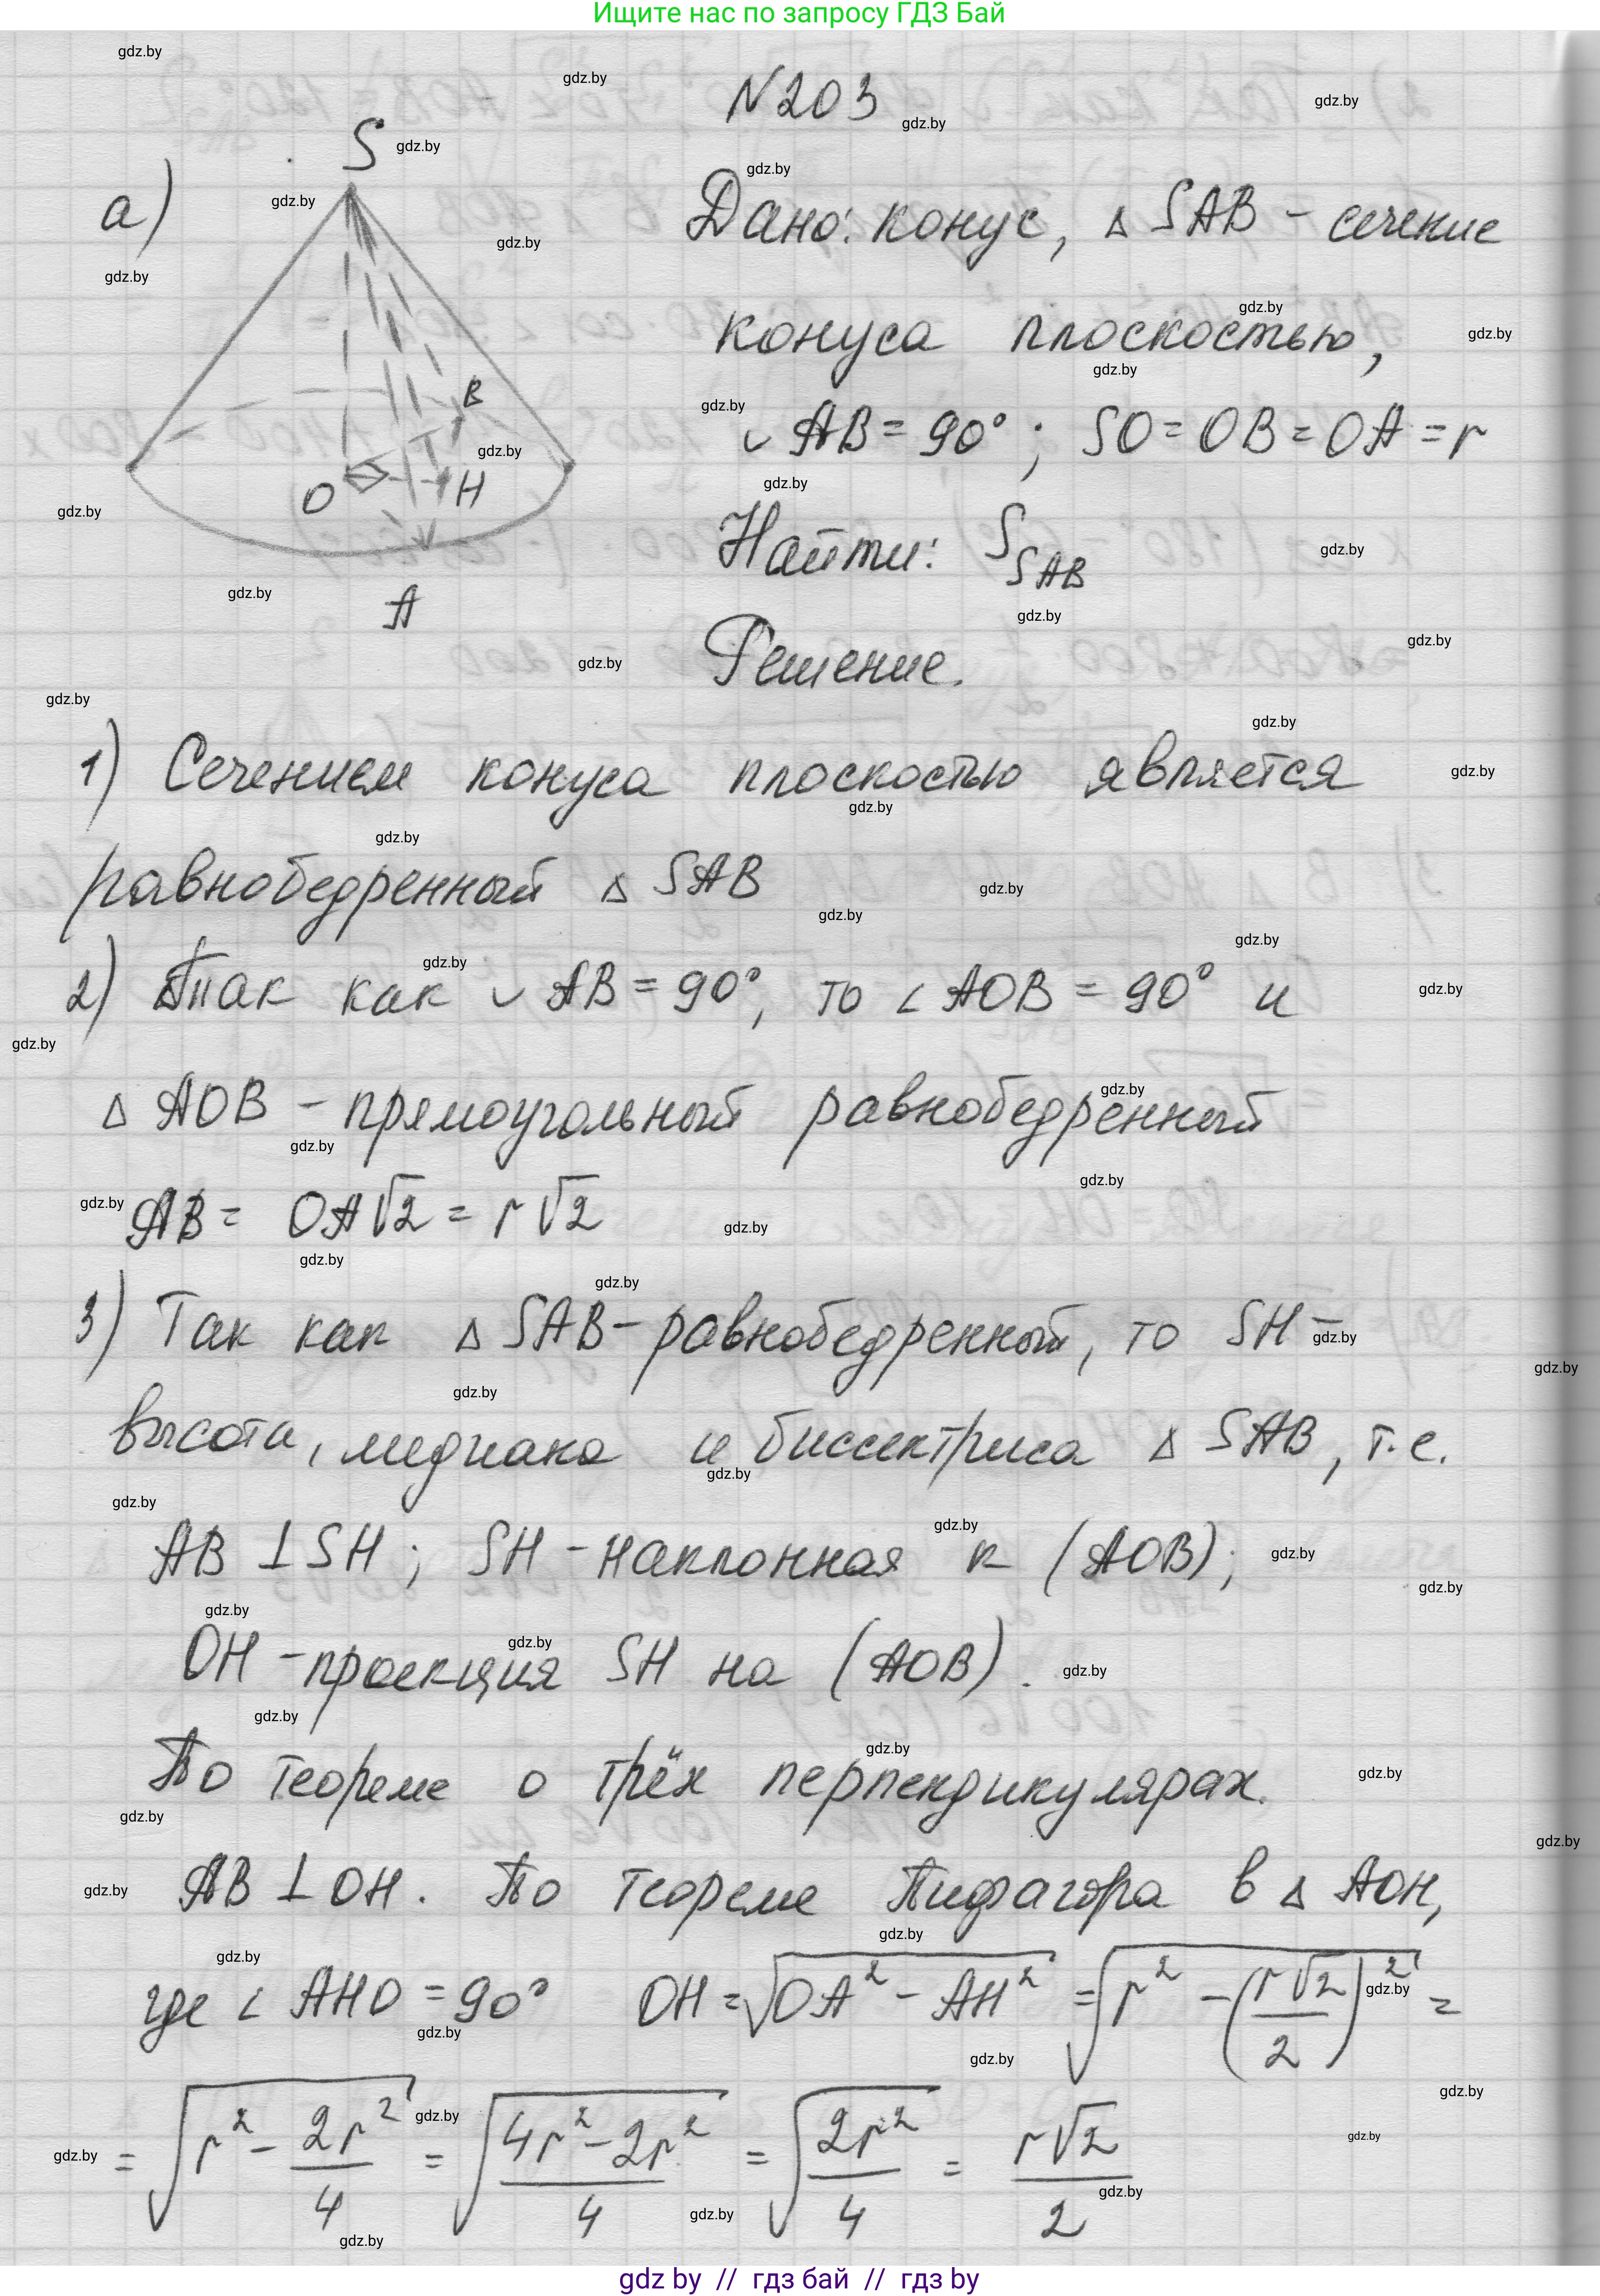 Ищите нас по запросу ГДЗ Бай
N203
а)
S
B
O
H
A
Дано: конус, △ SAB - сечение
конуса плоскостью,
◡ AB = 90° ; SO = OB = OA = r
Найти: S_SAB
Решение.
1) Сечением конуса плоскостью является
равнобедренный △ SAB
2) Так как ◡ AB = 90°, то ∠ AOB = 90° и
△ AOB - прямоугольный равнобедренный
AB = OA√2 = r√2
3) Так как △ SAB - равнобедренный, то SH -
высота, медиана и биссектриса △ SAB, т.е.
AB ⊥ SH ; SH - наклонная к (AOB) ;
OH - проекция SH на (AOB) .
По теореме о трёх перпендикулярах.
AB ⊥ OH . По теореме Пифагора в △ AOH,
где ∠ AHO = 90° OH = √(OA² - AH²) = √(r² - (r√2/2)²) =
= √(r² - 2r²/4) = √((4r² - 2r²)/4) = √(2r²/4) = r√2/2
gdz by // гдз бай // гдз by